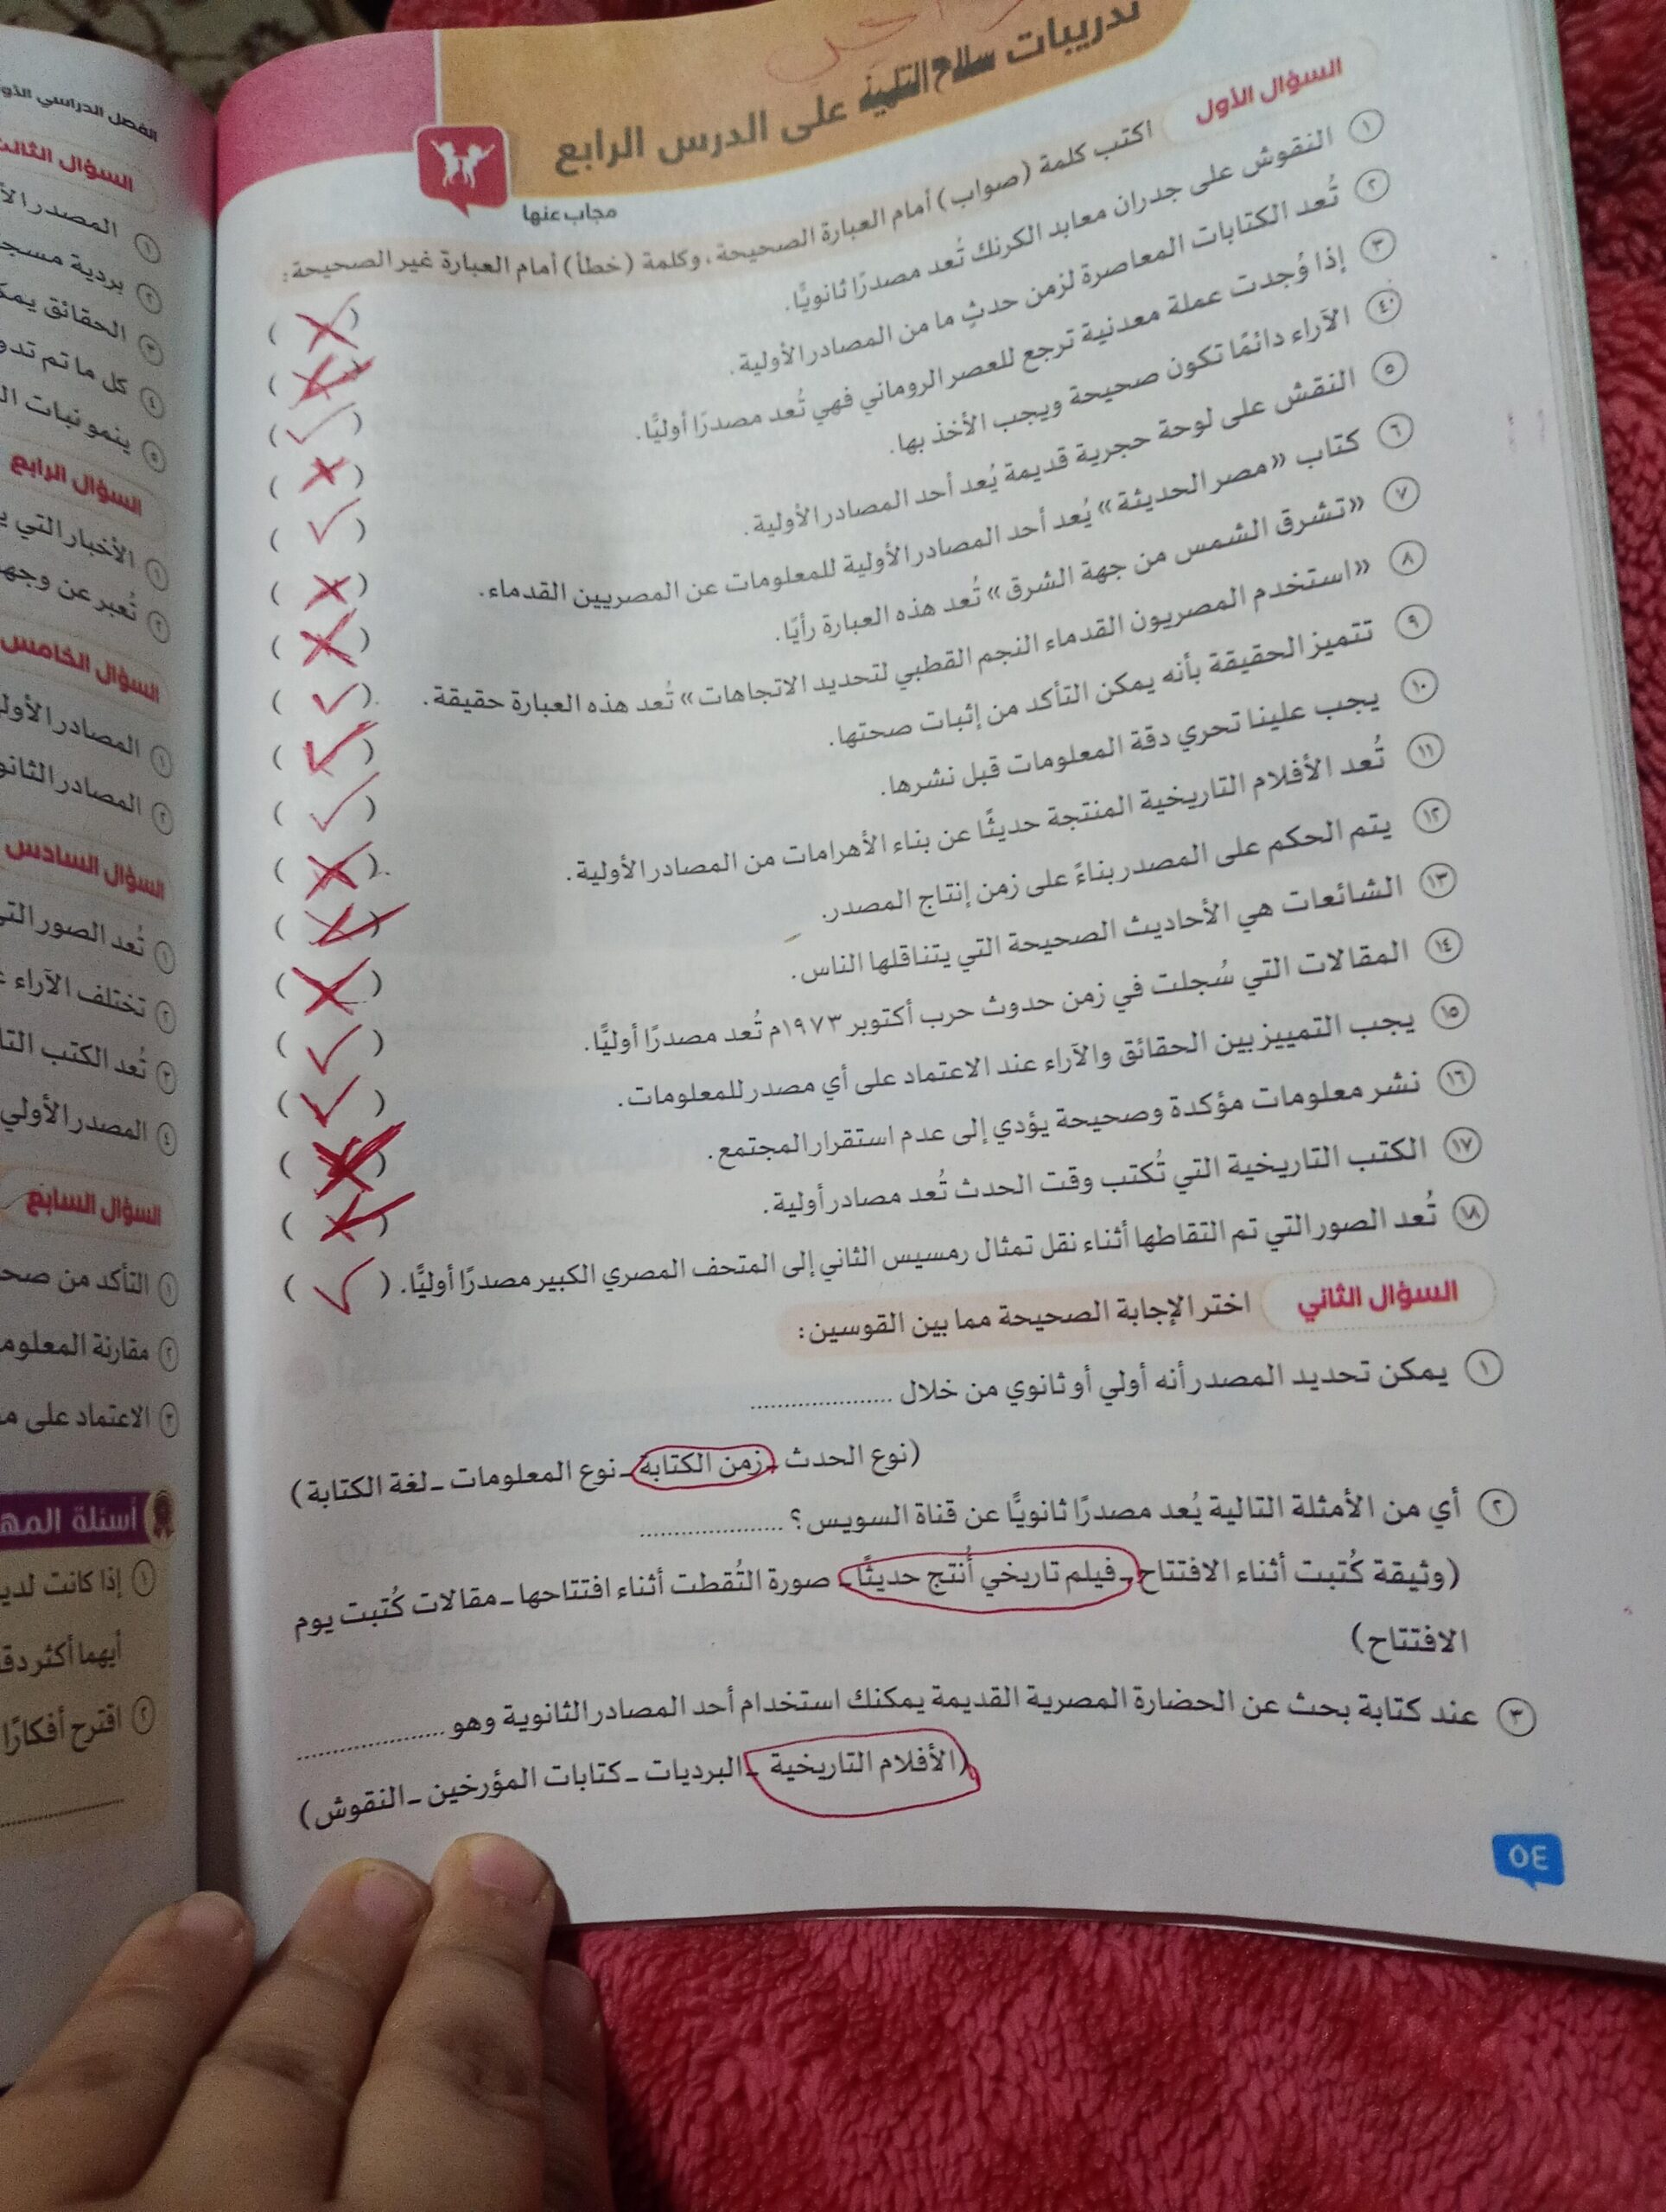 تدريبات سلاح التلميذ على الدرس الرابع
مجاب عنها
السؤال الأول اكتب كلمة (صواب) أمام العبارة الصحيحة، وكلمة (خطأ) أمام العبارة غير الصحيحة:
١ النقوش على جدران معابد الكرنك تُعد مصدرًا ثانويًّا. ( ✗ )
٢ تُعد الكتابات المعاصرة لزمن حدثٍ ما من المصادر الأولية. ( )
٣ إذا وُجدت عملة معدنية ترجع للعصر الروماني فهي تُعد مصدرًا أوليًّا. ( ✓ )
٤ الآراء دائمًا تكون صحيحة ويجب الأخذ بها. ( ✗ )
٥ النقش على لوحة حجرية قديمة يُعد أحد المصادر الأولية. ( ✓ )
٦ كتاب «مصر الحديثة» يُعد أحد المصادر الأولية للمعلومات عن المصريين القدماء. ( ✗ )
٧ «تشرق الشمس من جهة الشرق» تُعد هذه العبارة رأيًا. ( ✗ )
٨ «استخدم المصريون القدماء النجم القطبي لتحديد الاتجاهات» تُعد هذه العبارة حقيقة. ( ✓ )
٩ تتميز الحقيقة بأنه يمكن التأكد من إثبات صحتها. ( ✓ )
١٠ يجب علينا تحري دقة المعلومات قبل نشرها. ( ✓ )
١١ تُعد الأفلام التاريخية المنتجة حديثًا عن بناء الأهرامات من المصادر الأولية. ( ✗ )
١٢ يتم الحكم على المصدر بناءً على زمن إنتاج المصدر. ( )
١٣ الشائعات هي الأحاديث الصحيحة التي يتناقلها الناس. ( ✗ )
١٤ المقالات التي سُجلت في زمن حدوث حرب أكتوبر ١٩٧٣م تُعد مصدرًا أوليًّا. ( ✓ )
١٥ يجب التمييز بين الحقائق والآراء عند الاعتماد على أي مصدر للمعلومات. ( ✓ )
١٦ نشر معلومات مؤكدة وصحيحة يؤدي إلى عدم استقرار المجتمع. ( ✗ )
١٧ الكتب التاريخية التي تُكتب وقت الحدث تُعد مصادر أولية. ( )
١٨ تُعد الصور التي تم التقاطها أثناء نقل تمثال رمسيس الثاني إلى المتحف المصري الكبير مصدرًا أوليًّا. ( ✓ )
السؤال الثاني اختر الإجابة الصحيحة مما بين القوسين:
١ يمكن تحديد المصدر أنه أولي أو ثانوي من خلال ....................
(نوع الحدث ـ زمن الكتابة ـ نوع المعلومات ـ لغة الكتابة)
٢ أي من الأمثلة التالية يُعد مصدرًا ثانويًّا عن قناة السويس؟ ....................
(وثيقة كُتبت أثناء الافتتاح ـ فيلم تاريخي أُنتج حديثًا ـ صورة التُقطت أثناء افتتاحها ـ مقالات كُتبت يوم
الافتتاح)
٣ عند كتابة بحث عن الحضارة المصرية القديمة يمكنك استخدام أحد المصادر الثانوية وهو ....................
(الأفلام التاريخية ـ البرديات ـ كتابات المؤرخين ـ النقوش)
٥٤
الفصل الدراسي
السؤال الثالث
١ المصدر
٢ بردية
٣ الحقائق
٤ كل ما تم
٥ ينمو نبات
السؤال الرابع
١ الأخبار التي
٢ تُعبر عن
السؤال الخامس
١ المصادر
٢ المصادر
السؤال السادس
١ تُعد الصور
٢ تختلف الآراء
٣ تُعد الكتب
٤ المصدر الأولي
السؤال السابع
١ التأكد من
٢ مقارنة
٣ الاعتماد على
أسئلة
١ إذا كانت
أيهما أكثر
٢ اقترح أفكارًا